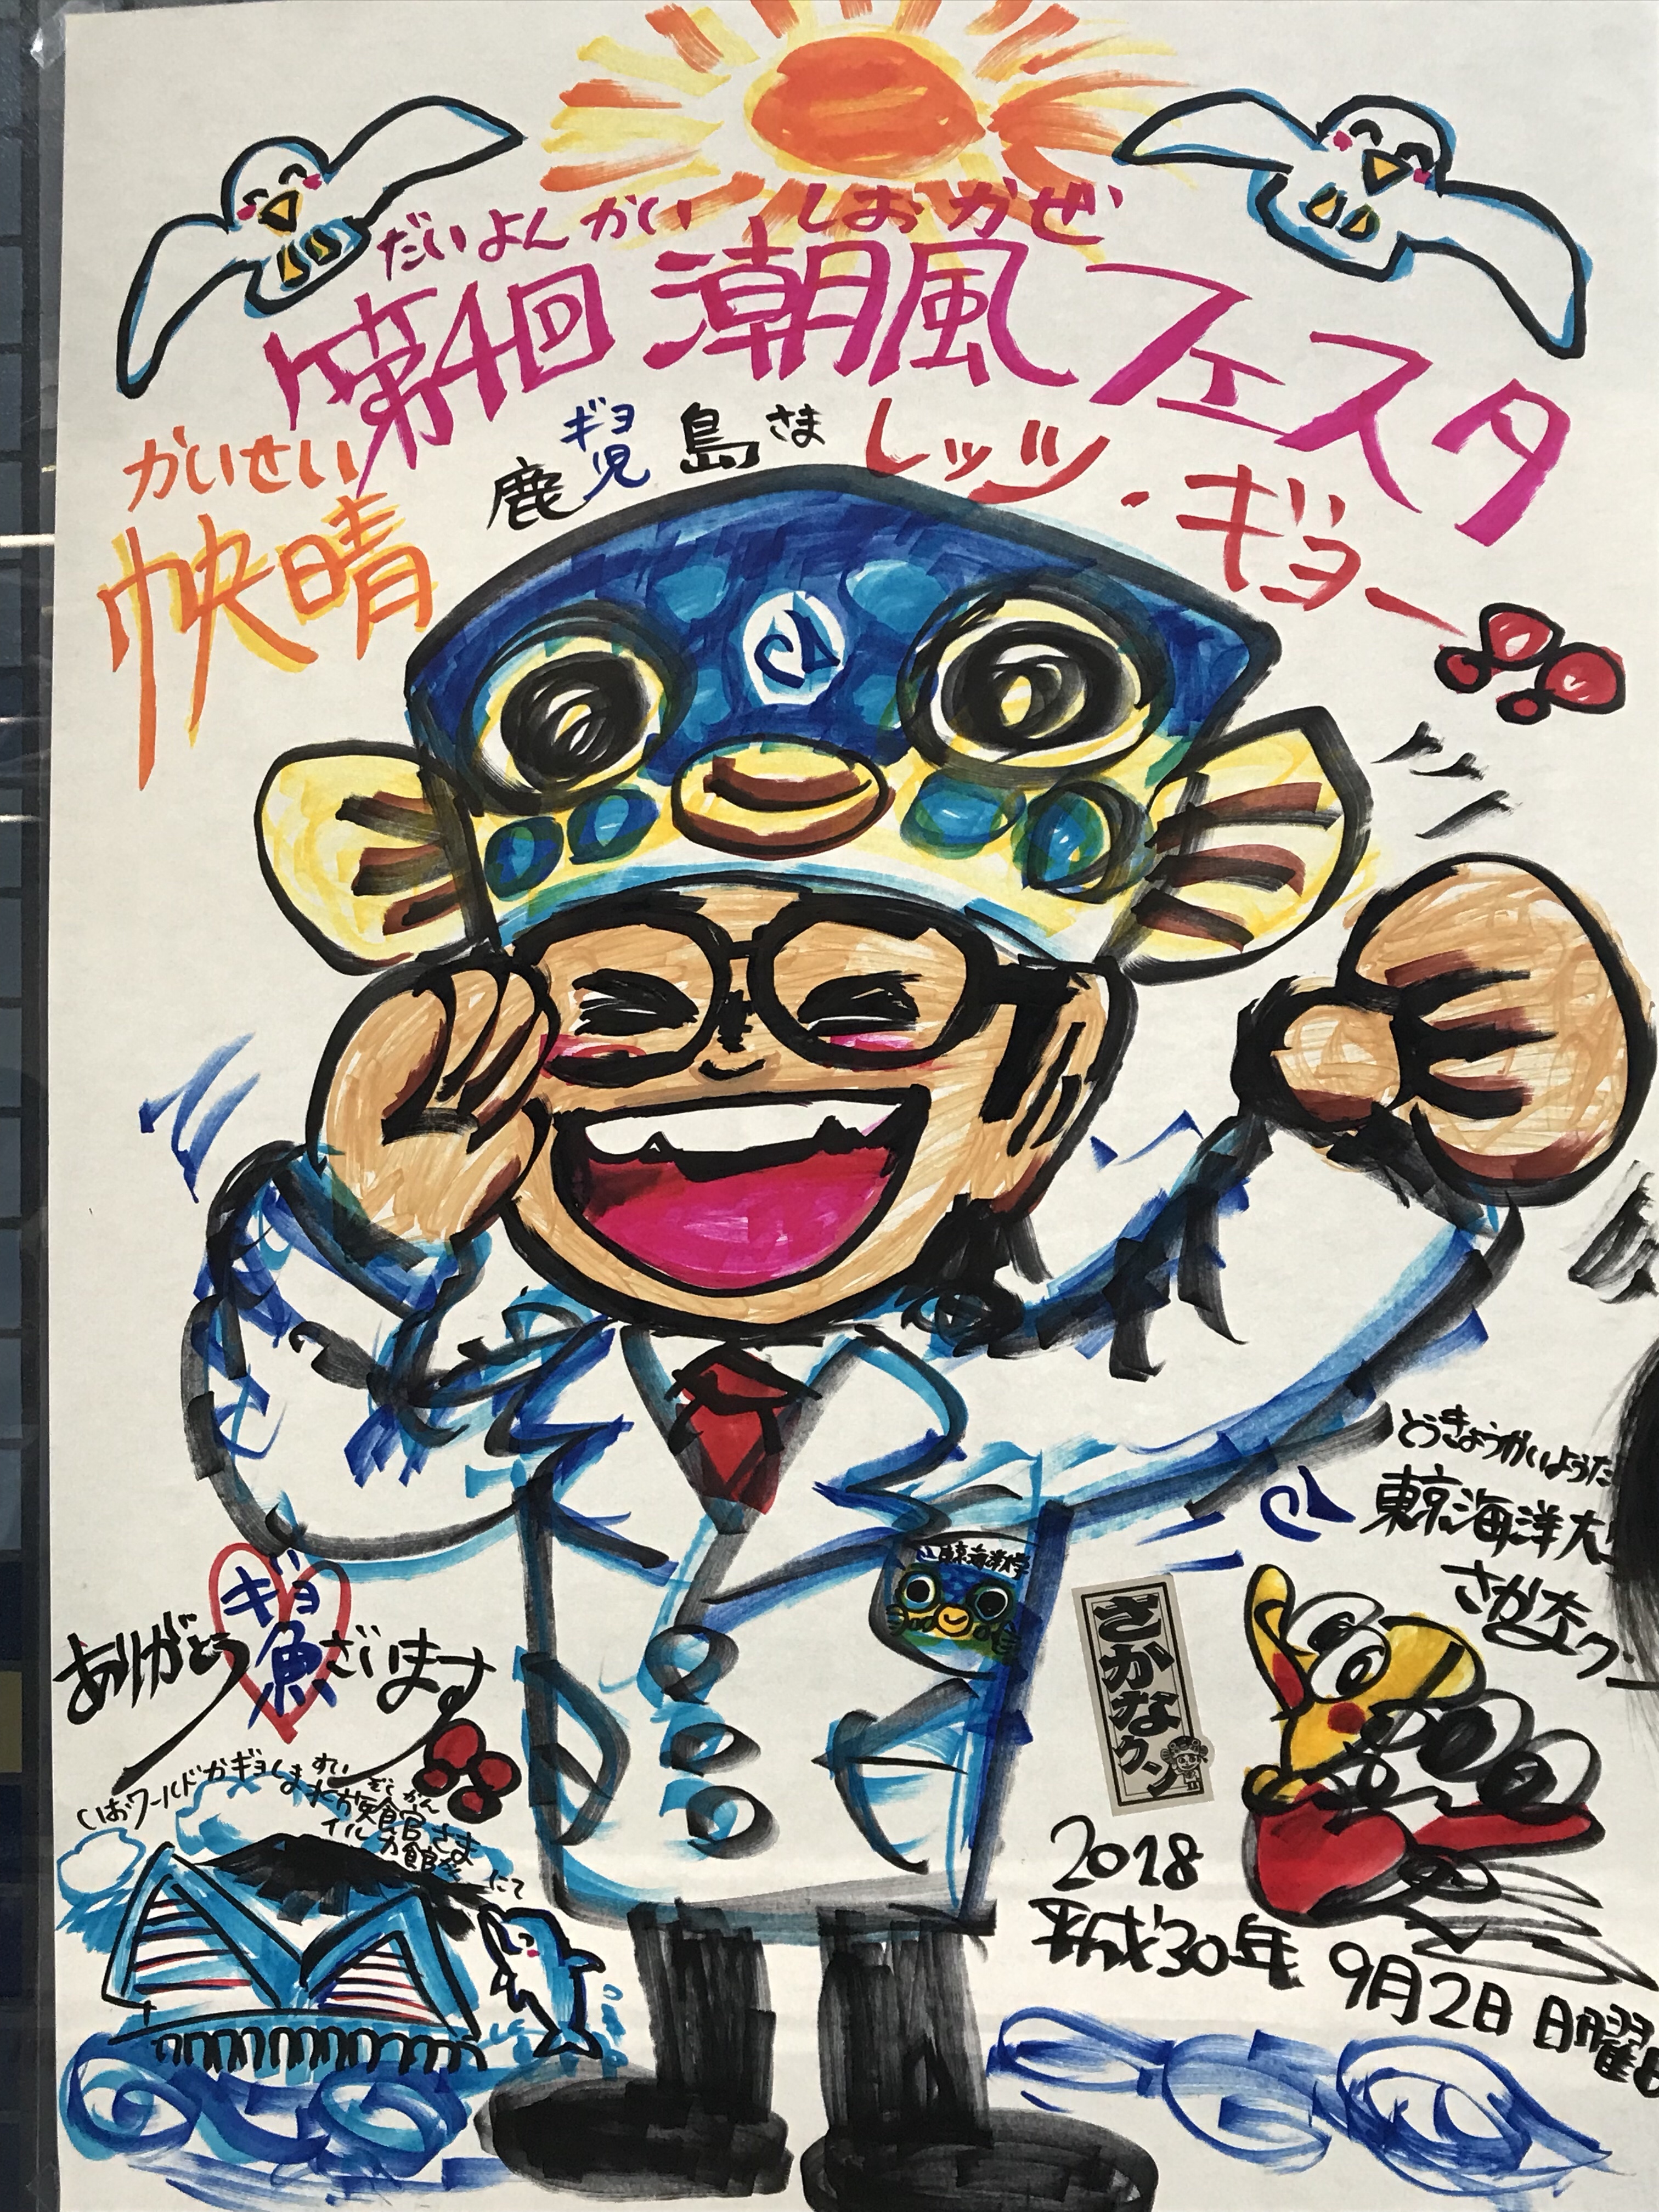 だいよんかい しおかぜ
第4回 潮風フェスタ
かいせい
快晴
ギョ
鹿児島さま
レッツ・ギョー!!
とうきょうかいようだ
東京海洋大
さかなクン
東京海洋大学
ギョ
ありがとう魚ざいます
いおワールドかギョしますいぞくかん
水族館さま
イルカ館
にて
さかなクン
2018
平成30年 9月2日 日曜日